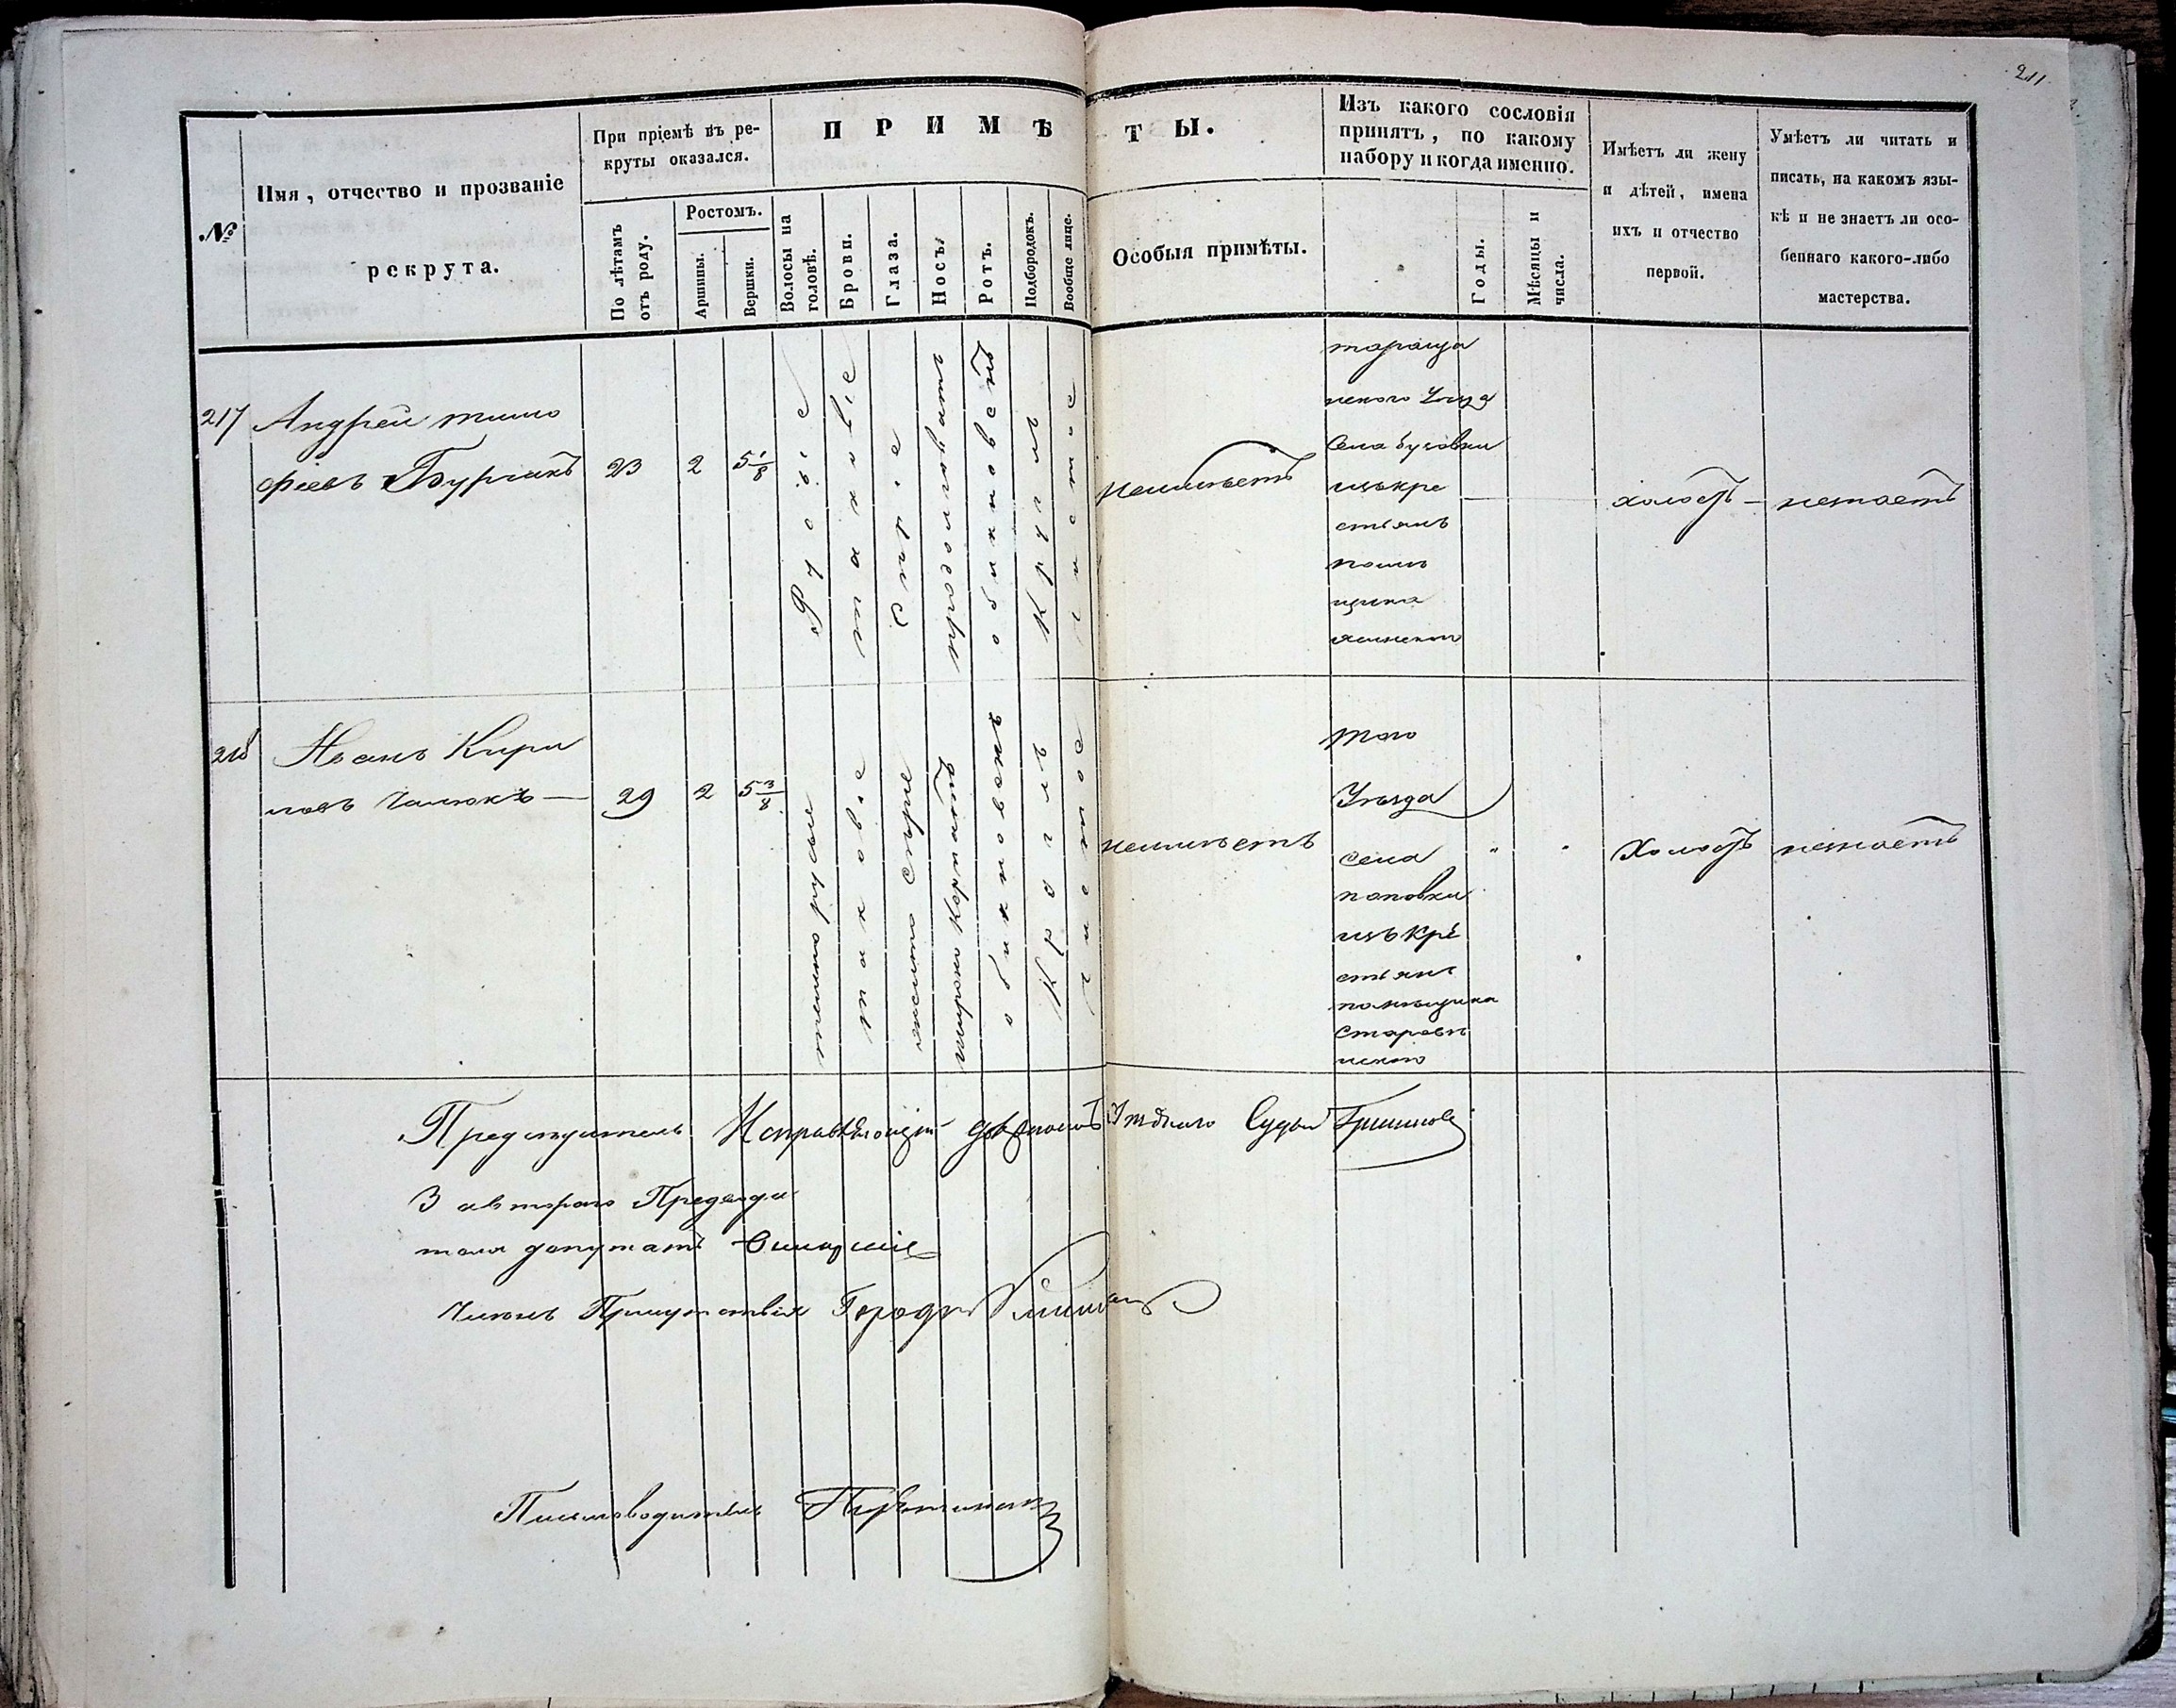 211
№
Имя, отчество и прозваніе
рекрута.
При пріемѣ въ ре-
круты оказался.
По лѣтамъ
отъ роду.
Ростомъ.
Аршины.
Вершки.
ПРИМѢТЫ.
Волосы на
головѣ.
Брови.
Глаза.
Носъ.
Ротъ.
Подбородокъ.
Вообще лице.
Особыя примѣты.
Изъ какого сословія
принятъ, по какому
набору и когда именно.
Годы.
Мѣсяцы и
числа.
Имѣетъ ли жену
и дѣтей, имена
ихъ и отчество
первой.
Умѣетъ ли читать и
писать, на какомъ язы-
кѣ и не знаетъ ли осо-
беннаго какого-либо
мастерства.
217
Андрей тимо
феевъ Бурлакъ
23
2
5 1/8
Русые
таковіе
Сѣріе
продолговатъ
обикновенъ
Круглъ
чистое
неимѣетъ
тараща
нского Уезда
Села буговки
изъ кре
стьянъ
помѣ
щика
холостъ —
незнаетъ
218
Иванъ Кири
ловъ Чалюкъ —
29
2
5 3/8
темно русые
таковіе
Сѣріе
обикновенъ
Круглъ
чистое
неимѣетъ
того
Уѣзда
села
поповки
изъ кре
стьянъ
помѣщика
Старовѣ
нского
"
"
Холостъ
незнаетъ
Председатель Исправляющій должность Уѣзднаго Судьи
За втораго Предводи
теля депутатъ
Членъ Присутствія
Писмоводитель